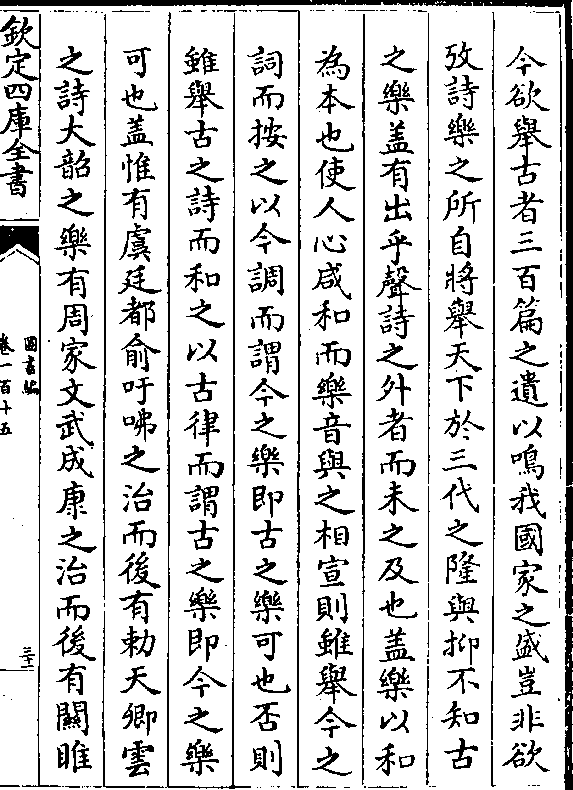 今欲舉古者三百篇之遺以鳴我國家之盛豈非欲
攷詩樂之所自將舉天下於三代之隆與抑不知古
之樂盖有出乎聲詩之外者而未之及也盖樂以和
為本也使人心咸和而樂音與之相宣則雖舉今之
詞而按之以今調而謂今之樂即古之樂可也否則
雖舉古之詩而和之以古律而謂古之樂即今之樂
可也盖惟有虞廷都俞吁咈之治而後有勅天卿雲
之詩大韶之樂有周家文武成康之治而後有關雎
欽定四庫全書
圖書編
卷一百十五
三十二